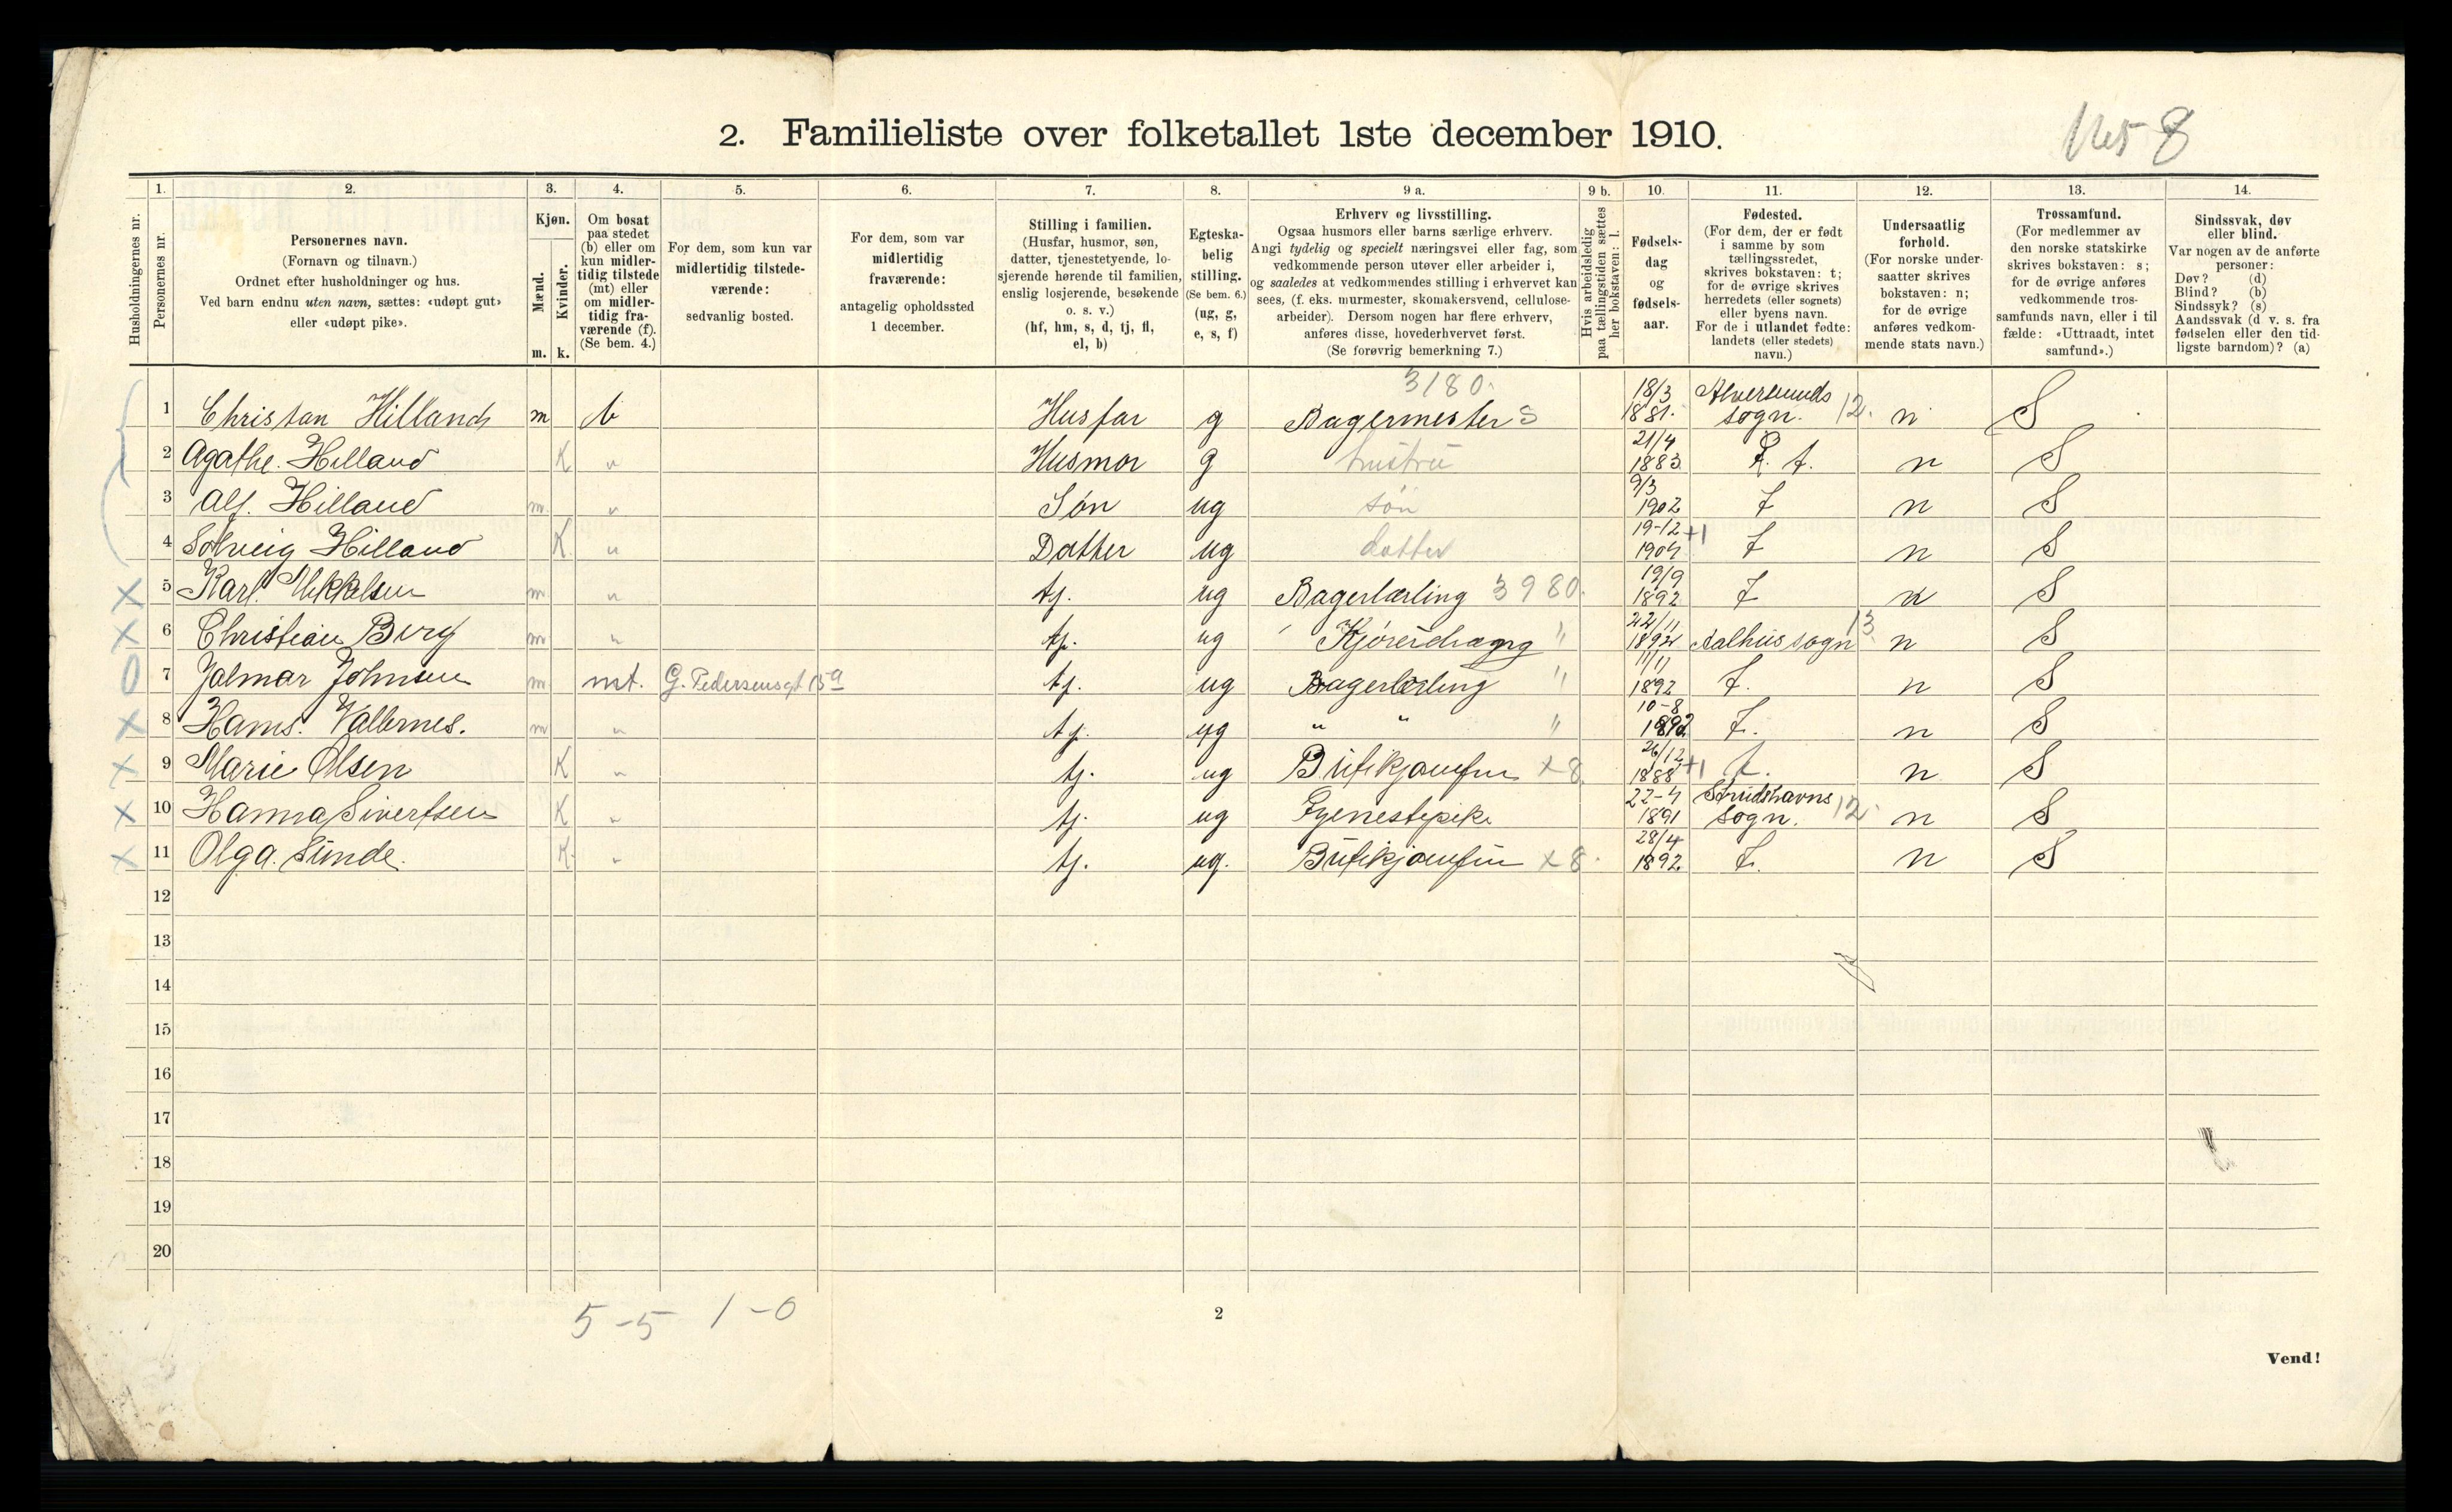 2. Familieliste over folketallet 1ste december 1910.
8
1. 2. 3. 4. 5. 6. 7. 8. 9 a. 9 b. 10. 11. 12. 13. 14.
Husholdningernes nr.
Personernes nr.
Personernes navn.
(Fornavn og tilnavn.)
Ordnet efter husholdninger og hus.
Ved barn endnu uten navn, sættes: «udøpt gut»
eller «udøpt pike».
Kjøn.
Mænd.
Kvinder.
m. k.
Om bosat
paa stedet
(b) eller om
kun midler-
tidig tilstede
(mt) eller
om midler-
tidig fra-
værende (f).
(Se bem. 4.)
For dem, som kun var
midlertidig tilstede-
værende:
sedvanlig bosted.
For dem, som var
midlertidig
fraværende:
antagelig opholdssted
1 december.
Stilling i familien.
(Husfar, husmor, søn,
datter, tjenestetyende, lo-
sjerende hørende til familien,
enslig losjerende, besøkende
o. s. v.)
(hf, hm, s, d, tj, fl,
el, b)
Egteska-
belig
stilling.
(Se bem. 6.)
(ug, g,
e, s, f)
Erhverv og livsstilling.
Ogsaa husmors eller barns særlige erhverv.
Angi tydelig og specielt næringsvei eller fag, som
vedkommende person utøver eller arbeider i,
og saaledes at vedkommendes stilling i erhvervet kan
sees, (f. eks. murmester, skomakersvend, cellulose-
arbeider). Dersom nogen har flere erhverv,
anføres disse, hovederhvervet først.
(Se forøvrig bemerkning 7.)
Hvis arbeidsledig
paa tællingstiden sættes
her bokstaven: l.
Fødsels-
dag
og
fødsels-
aar.
Fødested.
(For dem, der er født
i samme by som
tællingsstedet,
skrives bokstaven: t;
for de øvrige skrives
herredets (eller sognets)
eller byens navn.
For de i utlandet fødte:
landets (eller stedets)
navn.)
Undersaatlig
forhold.
(For norske under-
saatter skrives
bokstaven: n;
for de øvrige
anføres vedkom-
mende stats navn.)
Trossamfund.
(For medlemmer av
den norske statskirke
skrives bokstaven: s;
for de øvrige anføres
vedkommende tros-
samfunds navn, eller i til
fælde: «Uttraadt, intet
samfund».)
Sindssvak, døv
eller blind.
Var nogen av de anførte
personer:
Døv? (d)
Blind? (b)
Sindssyk? (s)
Aandssvak (d v. s. fra
fødselen eller den tid-
ligste barndom)? (a)
3180. 18/3 Alversunds
1 Christan Hilland m b Husfar g Bagermester S 1881. sogn. 12. n S
21/4
2 Agathe. Hilland K " Husmor g hustru 1883 t. n S
9/3
3 Alf. Hilland m " Søn ug søn 1902 t n S
19-12 +1
4 Solveig Hilland K " Datter ug datter 1904 t n S
19/9
X 5 Karl. Mikkelsen m " tj. ug Bagerlærling 3980. 1892 t n S
22/11 13
X 6 Christian Berg m " tj. ug Kjøredreng " 1892 Aalhus sogn n S
11/11
O 7 Jalmar Johnsen m mt. G. Pedersensgt 15a tj. ug Bagerlærling " 1892 t. n S
10-8
X 8 Hans. Vallernes. m " tj. ug " " " 1892 t. n S
26/12
X 9 Marie Olsen K " tj. ug Butikjomfru x8. 1888 +1 t. n S
22-4 Strudshavns
X 10 Hanna Sivertsen K " tj. ug Tjenestepike 1891 sogn. 12 n S
28/4
X 11 Olga. Sunde. K. " tj. ug. Butikjomfru x8. 1892. t. n S
12
13
14
15
16
17
18
19
20
5-5 1-0
2
Vend!